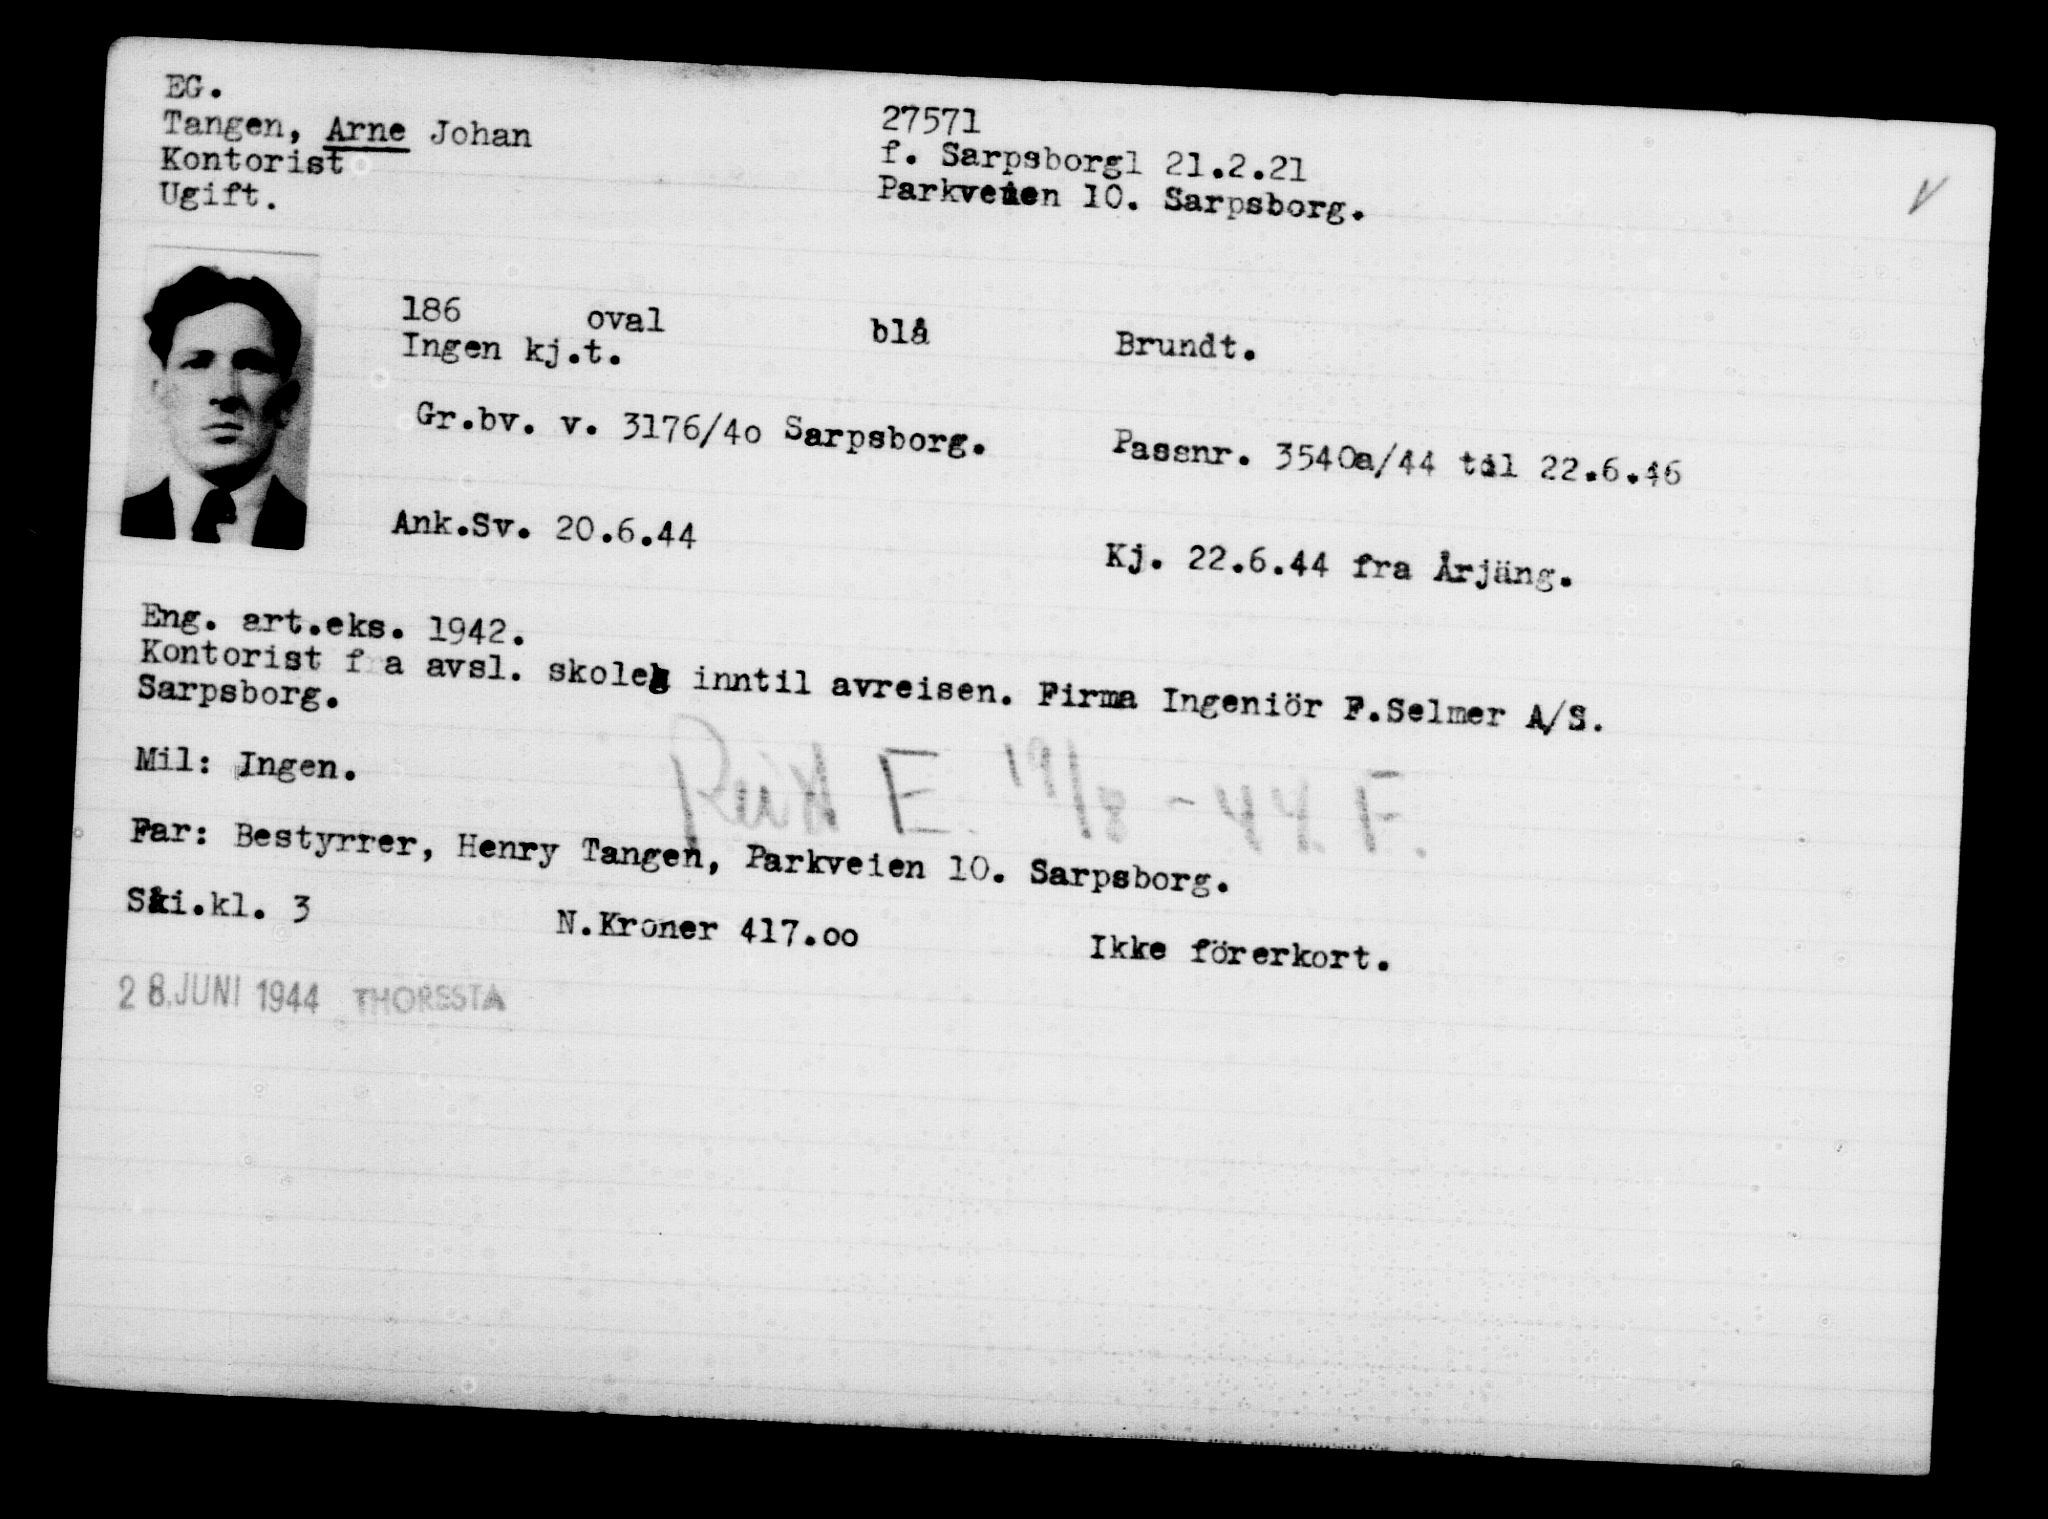 EG.
Tangen, Arne Johan
Kontorist
Ugift.
27571
f. Sarpsborgl 21.2.21
Parkveien 10. Sarpsborg.
186 oval blå Brundt.
Ingen kj.t.
Gr.bv. v. 3176/4o Sarpsborg. Passnr. 3540a/44 til 22.6.46
Ank.Sv. 20.6.44 Kj. 22.6.44 fra Årjäng.
Eng. art.eks. 1942.
Kontorist fra avsl. skoleg inntil avreisen. Firma Ingeniör F.Selmer A/S.
Sarpsborg.
Mil: Ingen.
E. 19/8 - 44. F.
Far: Bestyrrer, Henry Tangen, Parkveien 10. Sarpsborg.
Ski.kl. 3 N.Kroner 417.oo Ikke förerkort.
28.JUNI 1944 THORESTA